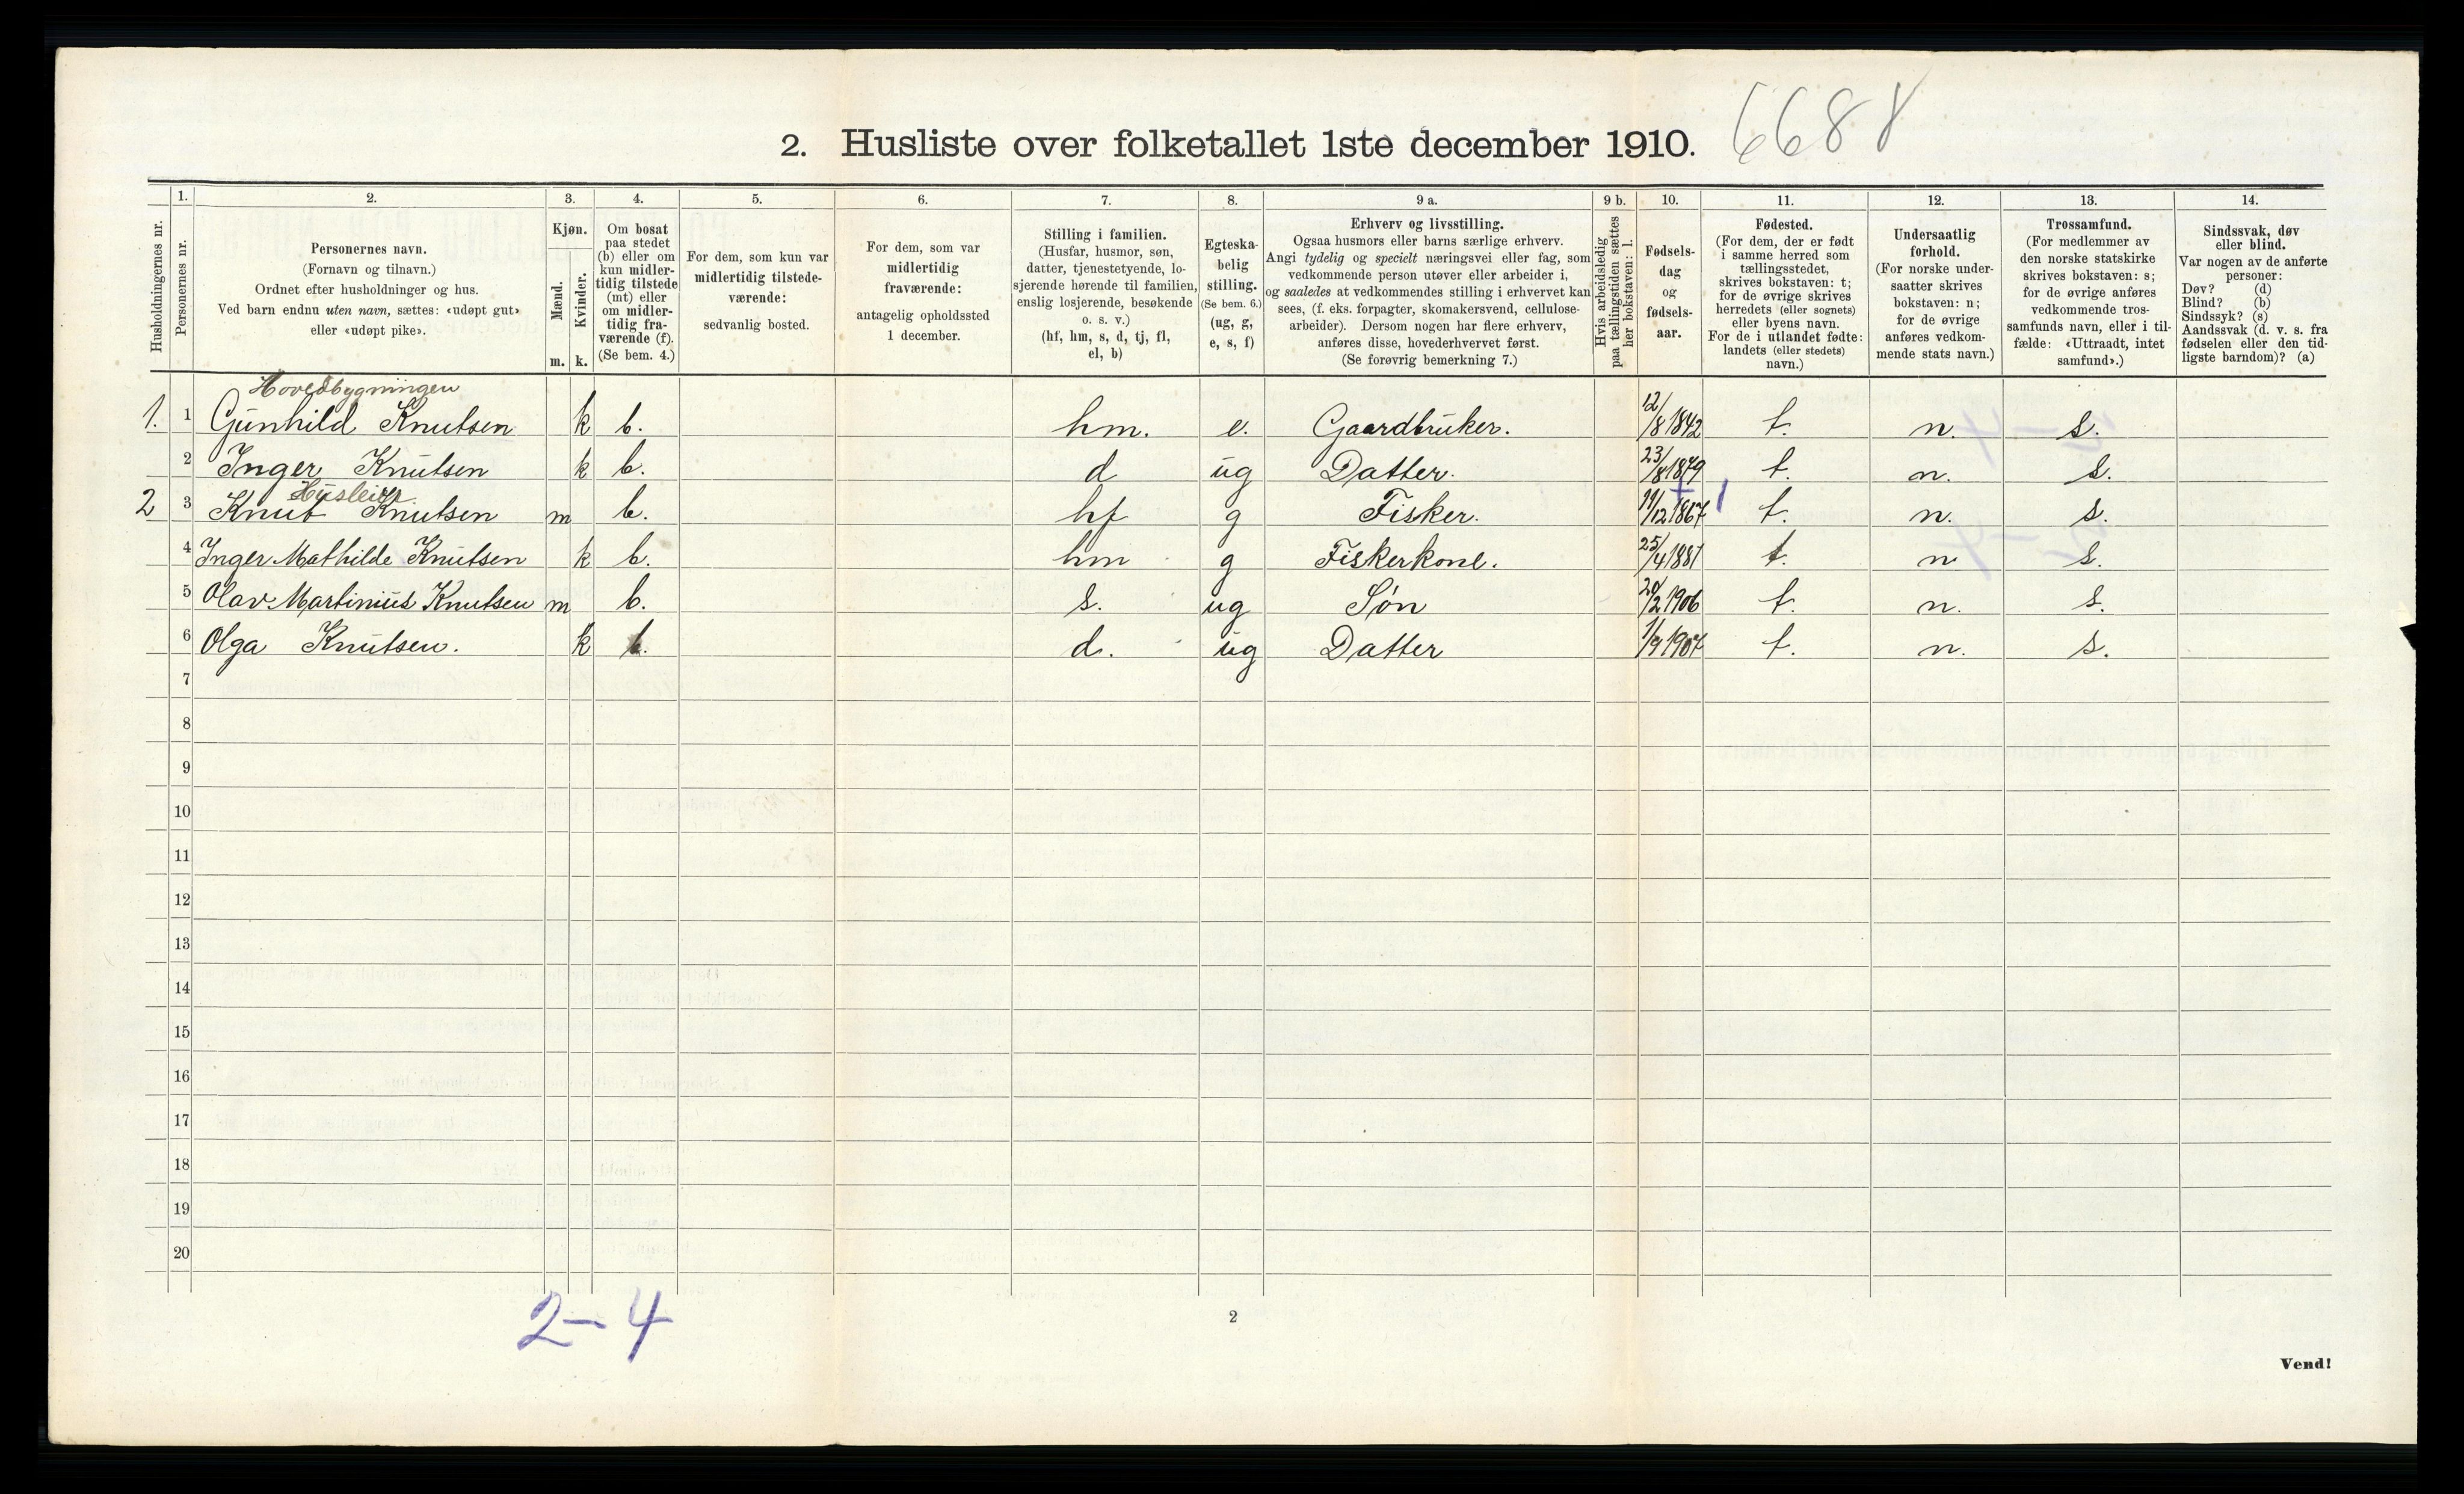 2. Husliste over folketallet 1ste december 1910.
668
Husholdningernes nr.
1.
Personernes nr.
2.
Personernes navn.
(Fornavn og tilnavn.)
Ordnet efter husholdninger og hus.
Ved barn endnu uten navn, sættes: «udøpt gut»
eller «udøpt pike».
3.
Kjøn.
Mænd.
Kvinder.
m. k.
4.
Om bosat
paa stedet
(b) eller om
kun midler-
tidig tilstede
(mt) eller
om midler-
tidig fra-
værende (f).
(Se bem. 4.)
5.
For dem, som kun var
midlertidig tilstede-
værende:
sedvanlig bosted.
6.
For dem, som var
midlertidig
fraværende:
antagelig opholdssted
1 december.
7.
Stilling i familien.
(Husfar, husmor, søn,
datter, tjenestetyende, lo-
sjerende hørende til familien,
enslig losjerende, besøkende
o. s. v.)
(hf, hm, s, d, tj, fl,
el, b)
8.
Egteska-
belig
stilling.
(Se bem. 6.)
(ug, g,
e, s, f)
9 a.
Erhverv og livsstilling.
Ogsaa husmors eller barns særlige erhverv.
Angi tydelig og specielt næringsvei eller fag, som
vedkommende person utøver eller arbeider i,
og saaledes at vedkommendes stilling i erhvervet kan
sees, (f. eks. forpagter, skomakersvend, cellulose-
arbeider). Dersom nogen har flere erhverv,
anføres disse, hovederhvervet først.
(Se forøvrig bemerkning 7.)
9 b.
Hvis arbeidsledig
paa tællingstiden sættes
her bokstaven: l.
10.
Fødsels-
dag
og
fødsels-
aar.
11.
Fødested.
(For dem, der er født
i samme herred som
tællingsstedet,
skrives bokstaven: t;
for de øvrige skrives
herredets (eller sognets)
eller byens navn.
For de i utlandet fødte:
landets (eller stedets)
navn.)
12.
Undersaatlig
forhold.
(For norske under-
saatter skrives
bokstaven: n;
for de øvrige
anføres vedkom-
mende stats navn.)
13.
Trossamfund.
(For medlemmer av
den norske statskirke
skrives bokstaven: s;
for de øvrige anføres
vedkommende tros-
samfunds navn, eller i til-
fælde: «Uttraadt, intet
samfund».)
14.
Sindssvak, døv
eller blind.
Var nogen av de anførte
personer:
Døv? (d)
Blind? (b)
Sindssyk? (s)
Aandssvak (d. v. s. fra
fødselen eller den tid-
ligste barndom)? (a)
Hovedbygningen
1. 1 Gunhild Knutsen k b. hm. e. Gaardbruker. 12/8 1842 t. n. s.
2 Inger Knutsen k b. d ug Datter. 23/8 1879 t. n. s.
Husleier
2 3 Knut Knutsen m b. hf g Fisker. 11/12 1867 t. n. s.
4 Inger Mathilde Knutsen k b. hm g Fiskerkone. 25/4 1881 t. n s.
5 Olav Martinius Knutsen m b. s. ug Søn 20/2 1906 t. n. s.
6 Olga Knutsen. k b. d. ug Datter 1/9 1907 t. n. s.
7
8
9
10
11
12
13
14
15
16
17
18
19
20
2-4
2
Vend!